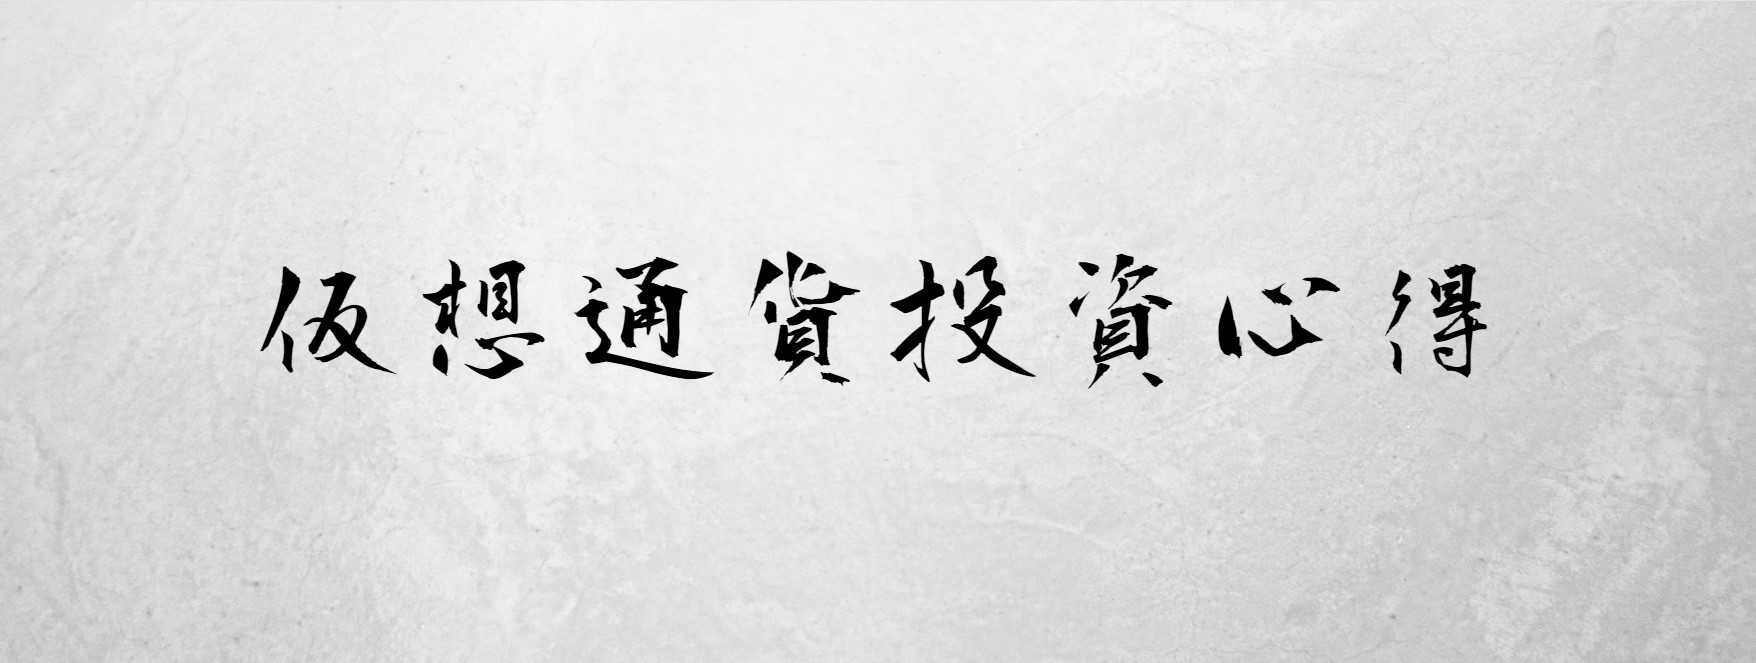 仮想通貨投資心得